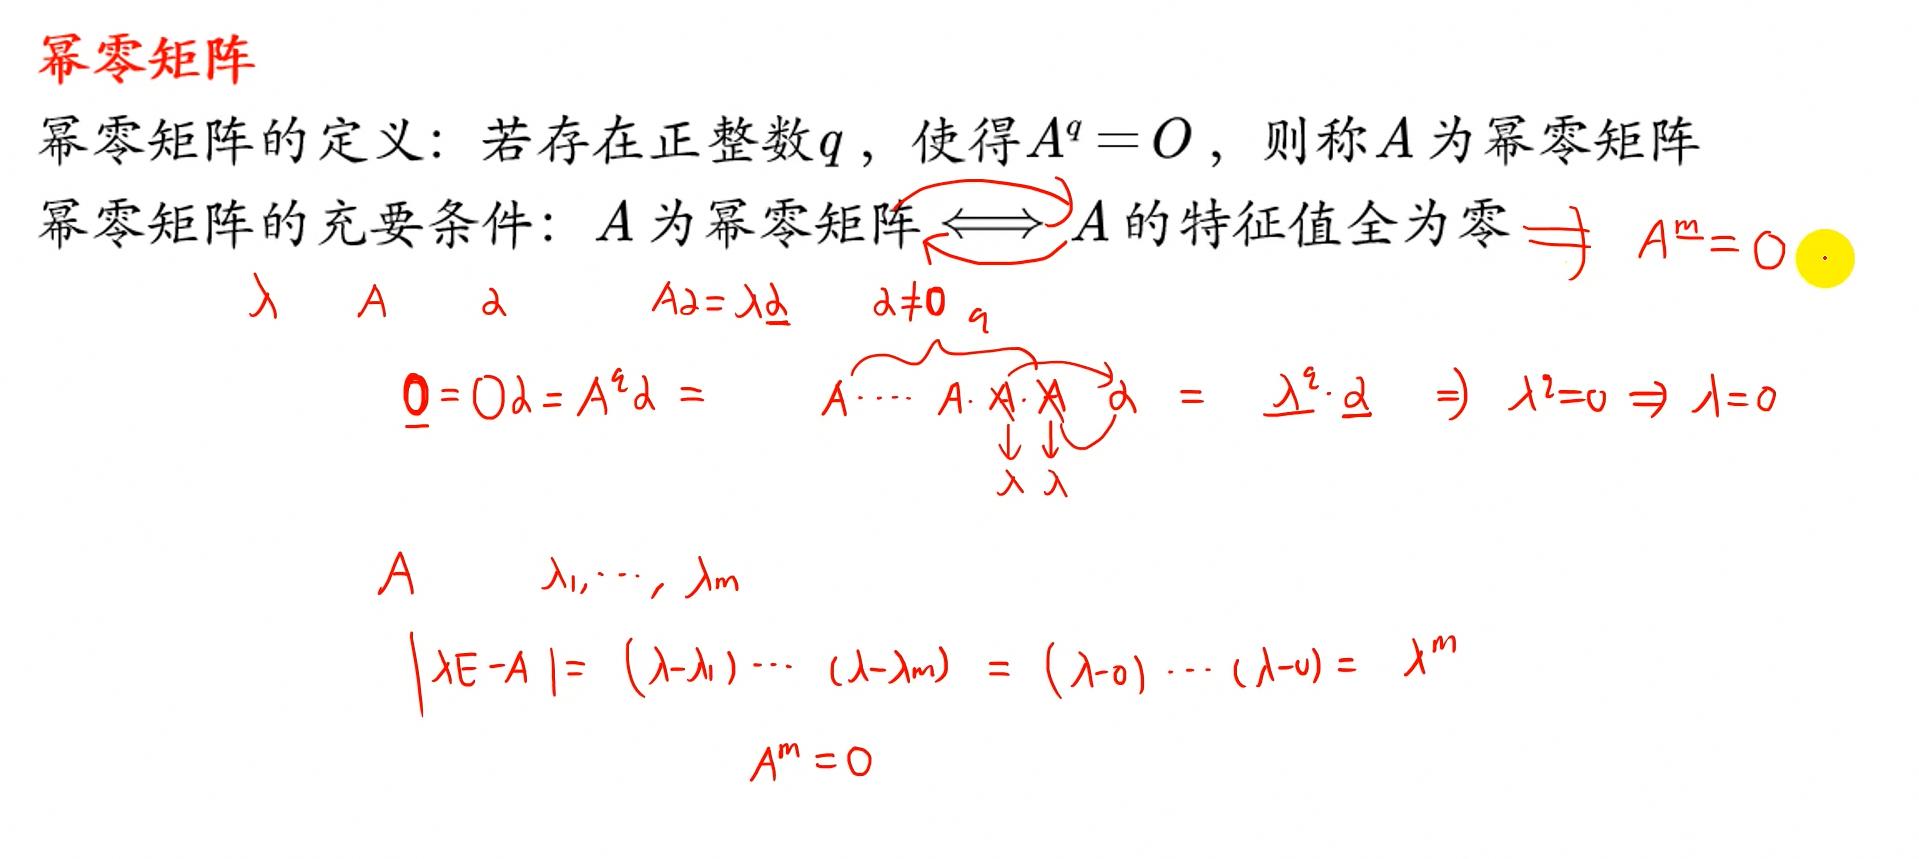 幂零矩阵
幂零矩阵的定义：若存在正整数q，使得A^q=O，则称A为幂零矩阵
幂零矩阵的充要条件：A为幂零矩阵⟺A的特征值全为零 ⇒ A^m=0
λ A α Aα=λα α≠0
q
0=Oα=A^qα= A····A·A·A α = λ^q·α ⇒ λ^q=0 ⇒ λ=0
↓ ↓
λ λ
A λ₁,···,λm
|λE-A|=(λ-λ₁)···(λ-λm)=(λ-0)···(λ-0)=λ^m
A^m=0